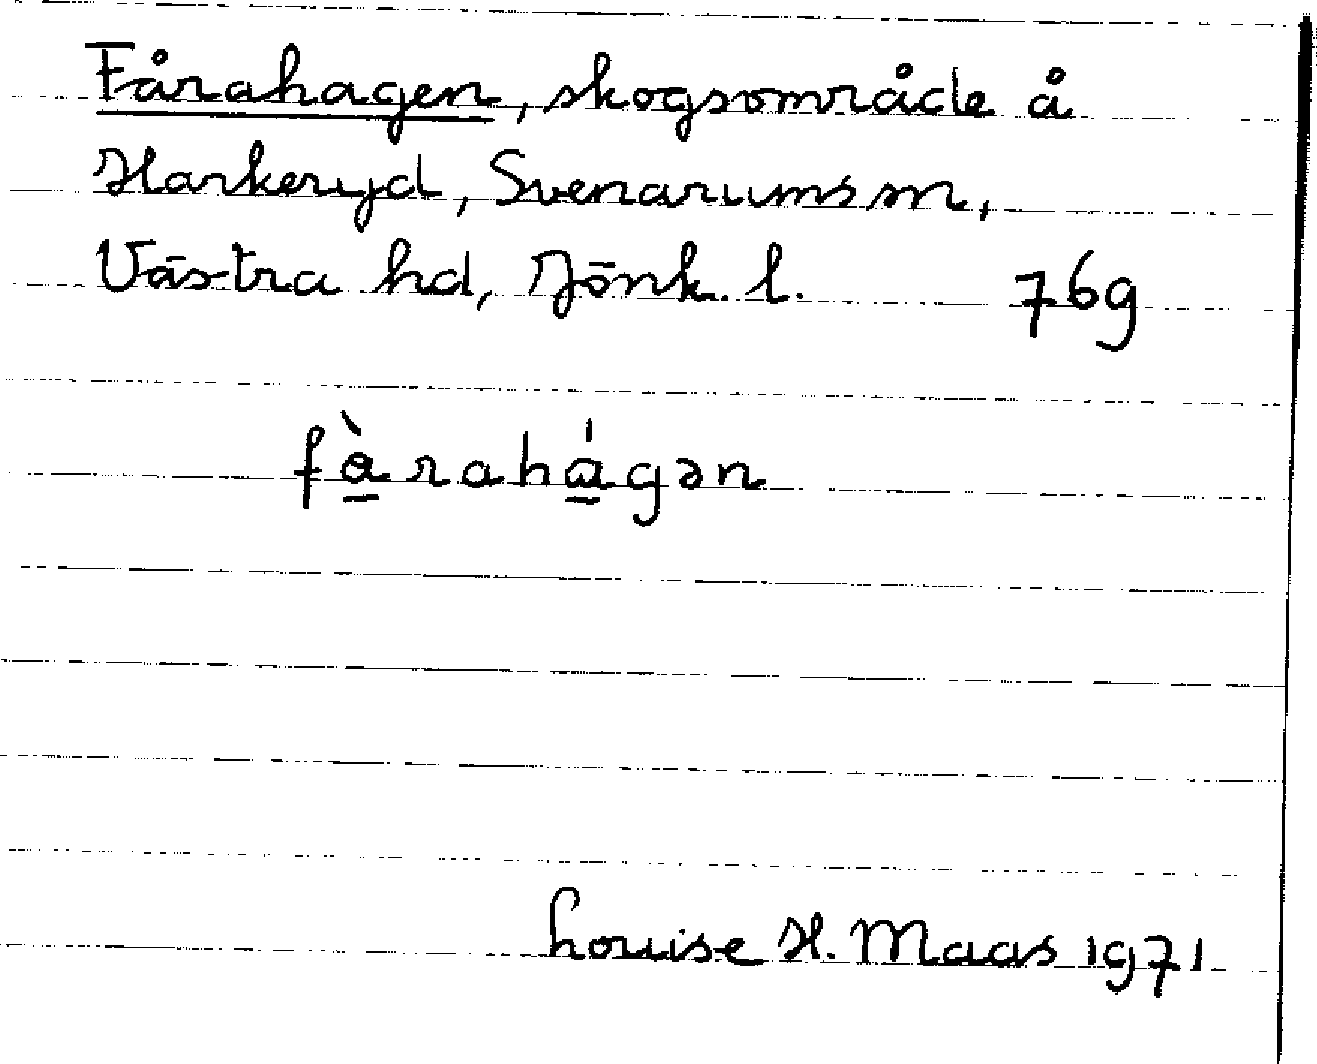 Fårahagen, skogsområde å
Harkeryd, Svenarums sn,
Västra hd, Jönk. l. 769
fàrahágən
Louise H. Maas 1971